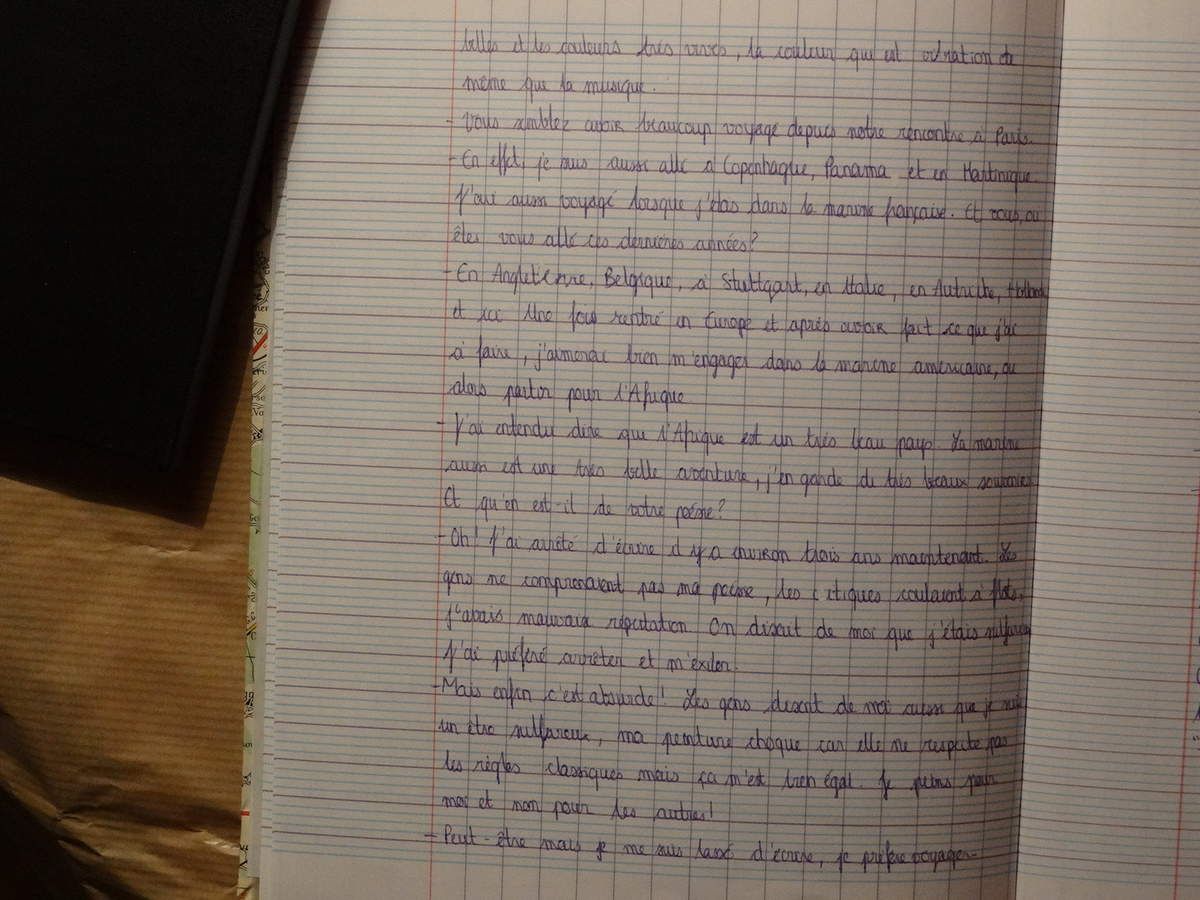 belles et les couleurs très vives, la couleur qui est vibration de
même que la musique.
- Vous semblez avoir beaucoup voyagé depuis notre rencontre à Paris.
- En effet, je suis aussi allé à Copenhague, Panama et en Martinique
J'ai aussi voyagé lorsque j'étais dans la marine française. Et vous, ou
êtes vous allé ces dernières années?
- En Angleterre, Belgique, à Stuttgart, en Italie, en Autriche, Hollande
et ici Une fois rentré en Europe et après avoir fait ce que j'ai
à faire, j'aimerai bien m'engager dans la marine américaine, ou
alors partir pour l'Afrique
- J'ai entendu dire que l'Afrique est un très beau pays. La marine
aussi est une très belle aventure, j'en garde de très beaux souvenirs
Et qu'en est-il de votre poésie?
- Oh! J'ai arrêté d'écrire il y a environ trois ans maintenant. Les
gens ne comprenaient pas ma poésie, les critiques coulaient à flots,
j'avais mauvaise réputation On disait de moi que j'étais sulfureux
J'ai préféré arrêter et m'exiler.
- Mais enfin c'est absurde! Les gens disent de moi aussi que je suis
un être sulfureux, ma peinture choque car elle ne respecte pas
les règles classiques mais ça m'est bien égal. Je peins pour
moi et non pour les autres!
- Peut-être mais je me suis lassé d'écrire, je préfère voyager.